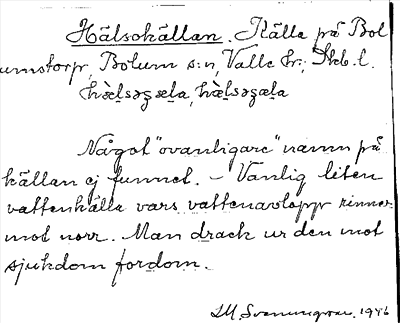 Hälsokällan. Källa på Bol
umstorp, Bolum s:n, Valle hr; Skb. l.
hälsoʒɛla, hälsəʒɛla
Något "ovanligare" namn på
källan ej funnet. – Vanlig liten
vattenkälla vars vattenavlopp rinner
mot norr. Man drack ur den mot
sjukdom fordom.
1946